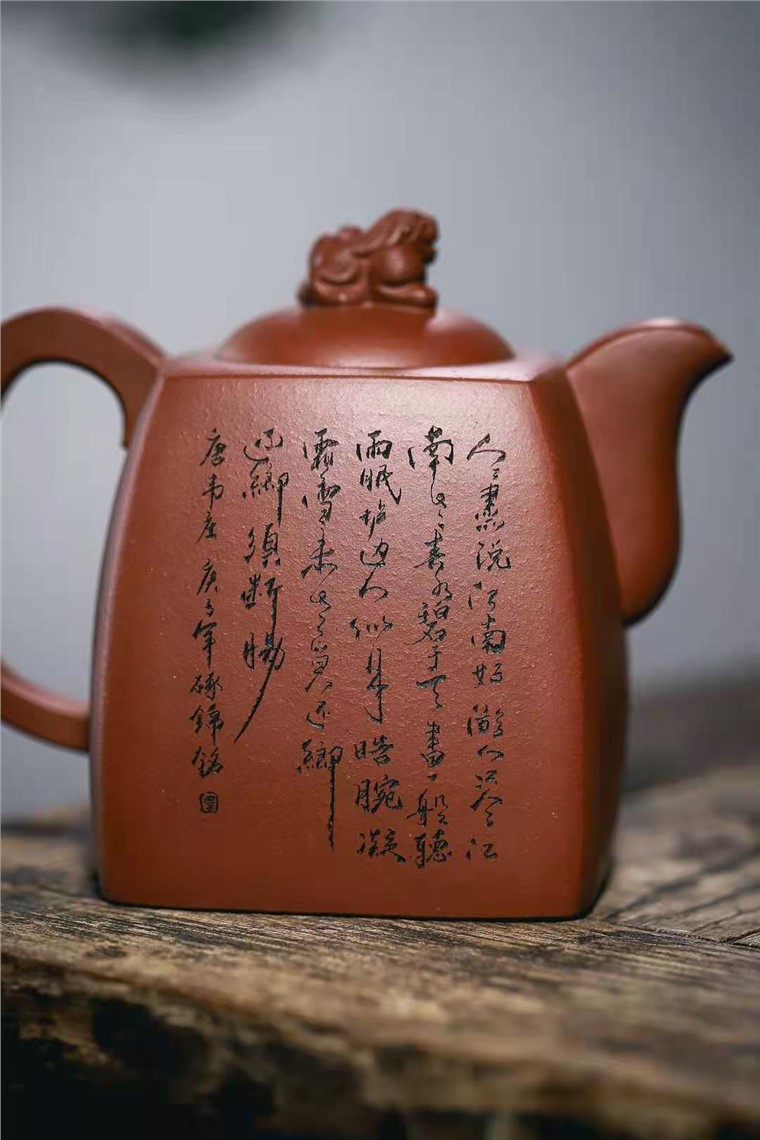 人人盡说江南好遊人只合江
南老春水碧于天畫船聽
雨眠垆边人似月皓腕凝
霜雪未老莫还鄉
还鄉須断腸
唐韦庄 庚子年琢錦銘